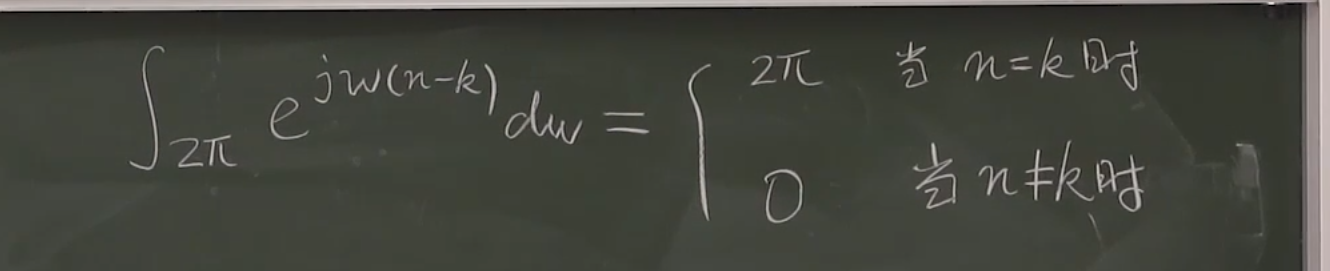 ∫_{2π} e^{jw(n-k)} dw = { 2π 当 n=k 时
0 当 n≠k 时